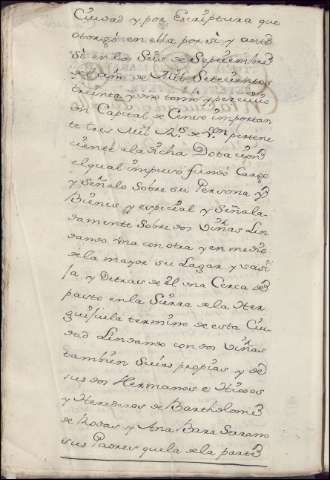 Ciudad y por Escriptura que
otorgó en ella por sí y
en los Seis de Septiembre
de Mill Setecientos
treinta y uno tomó y percivió
Capital de Censo importan
te tres Mill R.s de V.n pertene
ciente a la dicha Dotación
el qual impuso fundó Cargó
y Señaló Sobre su Persona y
Bienes y especial y Señala
damente Sobre dos Viñas Lin
dando una con otra y en medio
de la mayor su Lagar y vasi
ja y Detras de él una Cerca de
en la Sierra de la Her
guijuela termino de esta Ciu
dad Lindando con dos Viñas
tambien Suias propias y de
sus dos Hermanos e Hixos
y Herederos de Bartholome
de Rodas y Ana Serrano
sus Padres que la de la parte